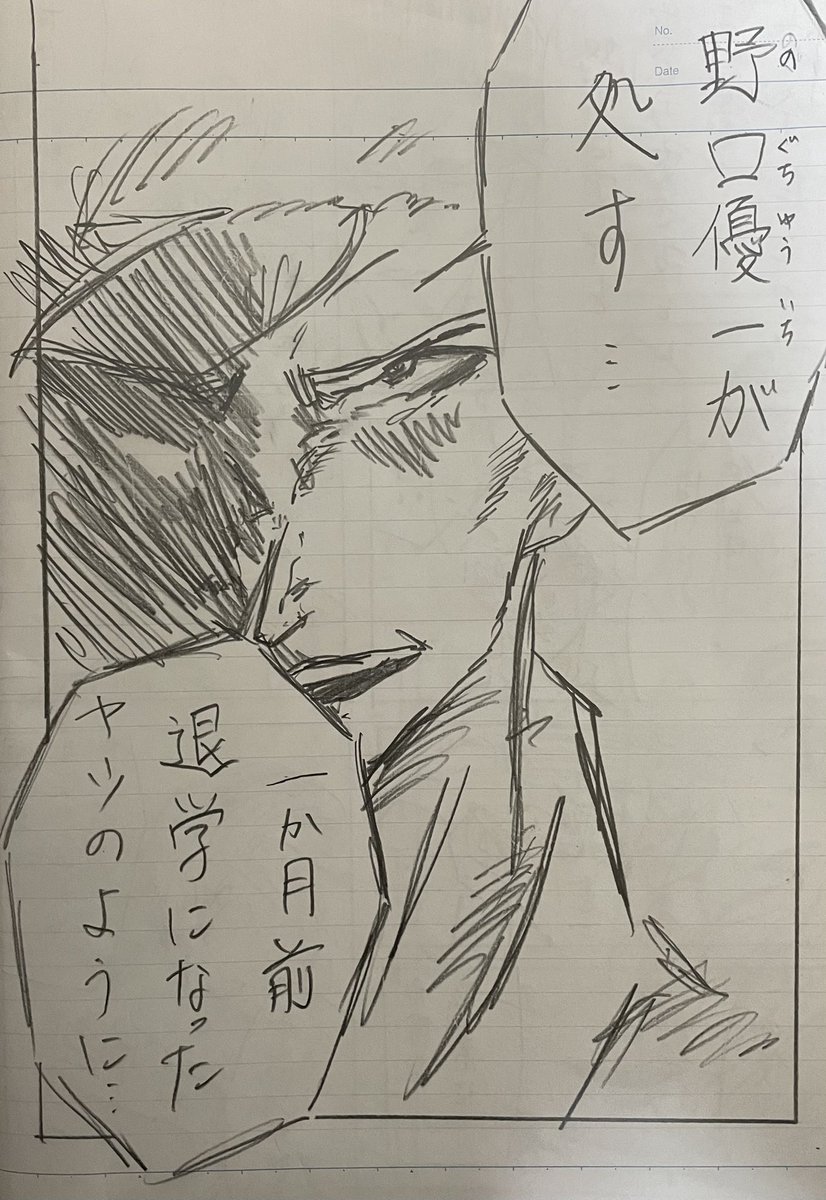 No.
Date
野口優一が
のぐちゆういち
処す…
一か月前
退学になった
ヤツのように…